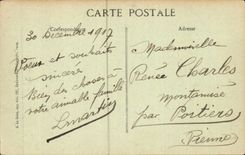 CARTE POSTALE
Correspondance
Adresse
30 Décembre 1917
Voeux et souhaits
sincères
Bien des choses à
votre aimable famille
Lmartin
Mademoiselle
Renée Charles
Montamisé
par Poitiers
Vienne